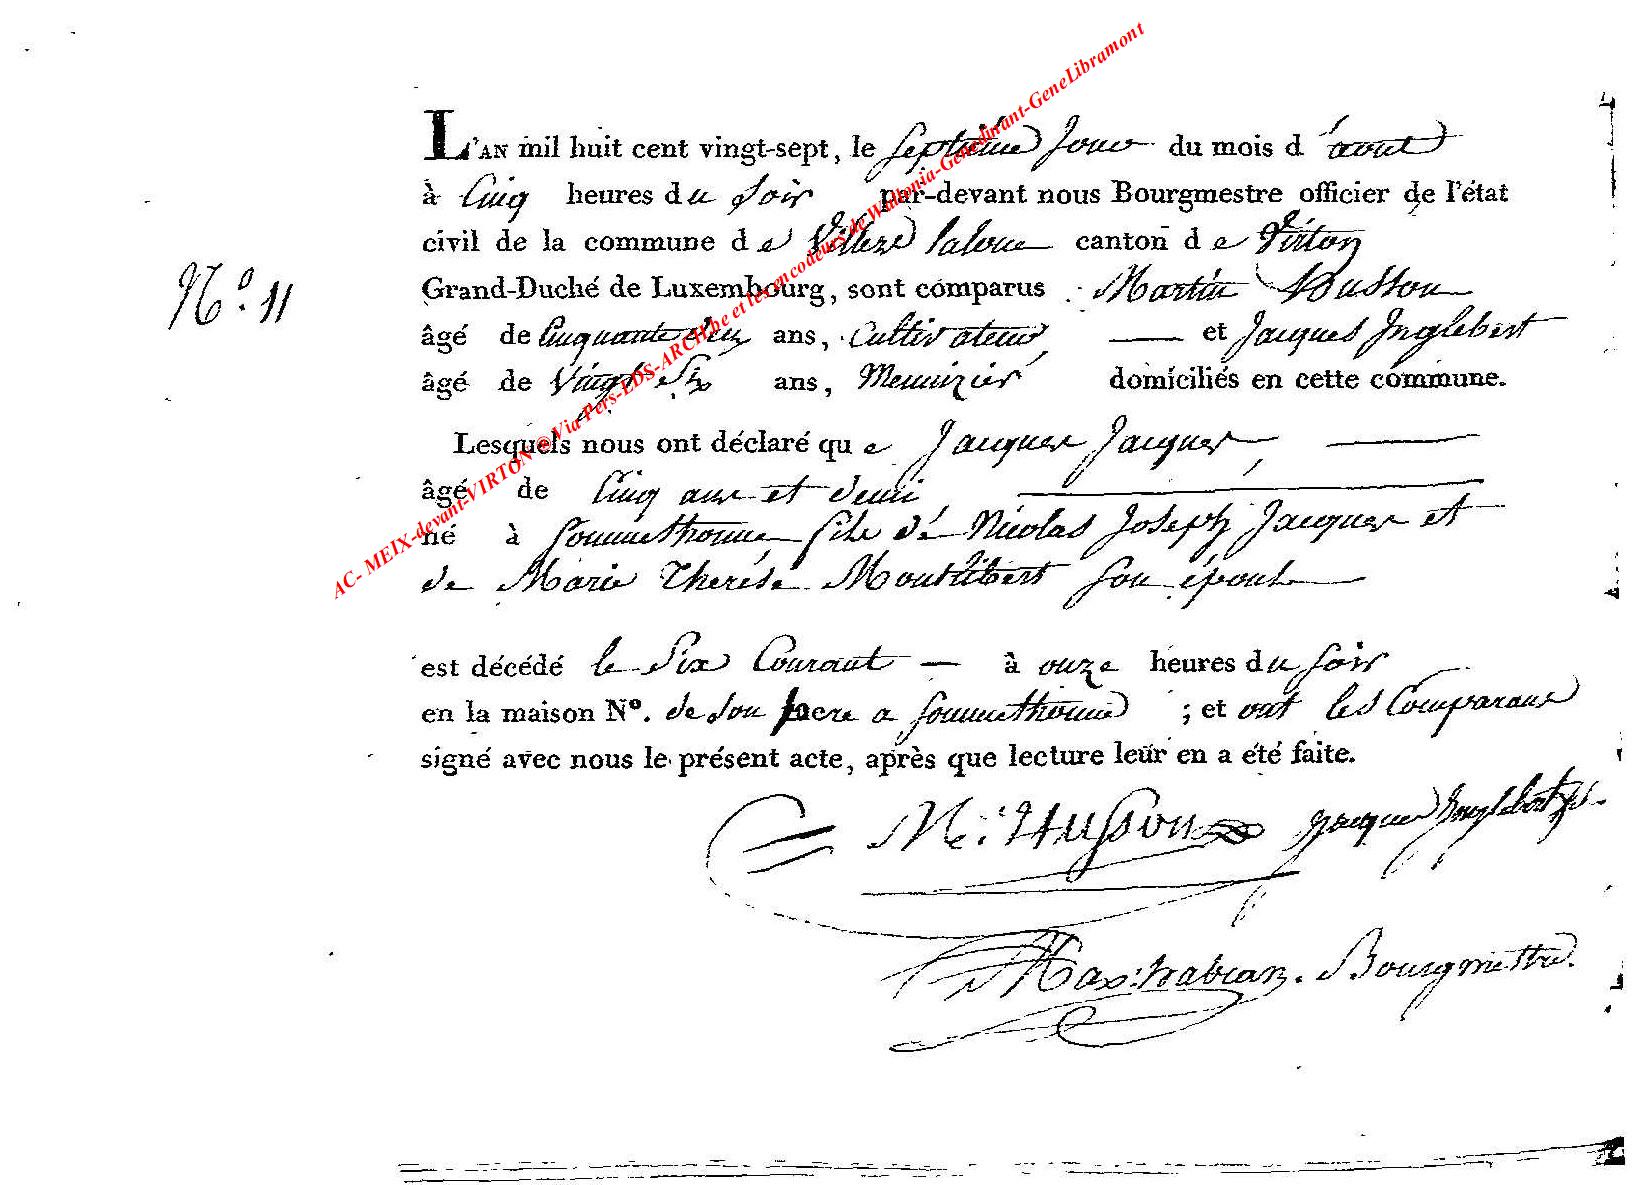 L'AN mil huit cent vingt-sept, le septième Jour du mois d'aout
à Cinq heures du soir par-devant nous Bourgmestre officier de l'état
civil de la commune de Villers laloue canton de Virton
Grand-Duché de Luxembourg, sont comparus Martin Husson
N.º 11
âgé de Cinquante ans, Cultivateur et Jacques Inglebert
âgé de Vingt Six ans, Menuizier domiciliés en cette commune.
Lesquels nous ont déclaré que Jacques Jacques,
âgé de Cinq ans et demi
né à Sommethonne fils de Nicolas Joseph Jacques et
de Marie Therése Montlibert son épouse
est décédé le Six Courant à onze heures du soir
en la maison Nº. de son pere a sommethonne ; et ont les Comparans
signé avec nous le présent acte, après que lecture leur en a été faite.
M. Husson Jacques Inglebert
Bourgmestre.
AC- MEIX-devant-VIRTON @Via Pers-EDS-ARCH.be et les encodeurs de Wallonia-Genedinant-GeneLibramont